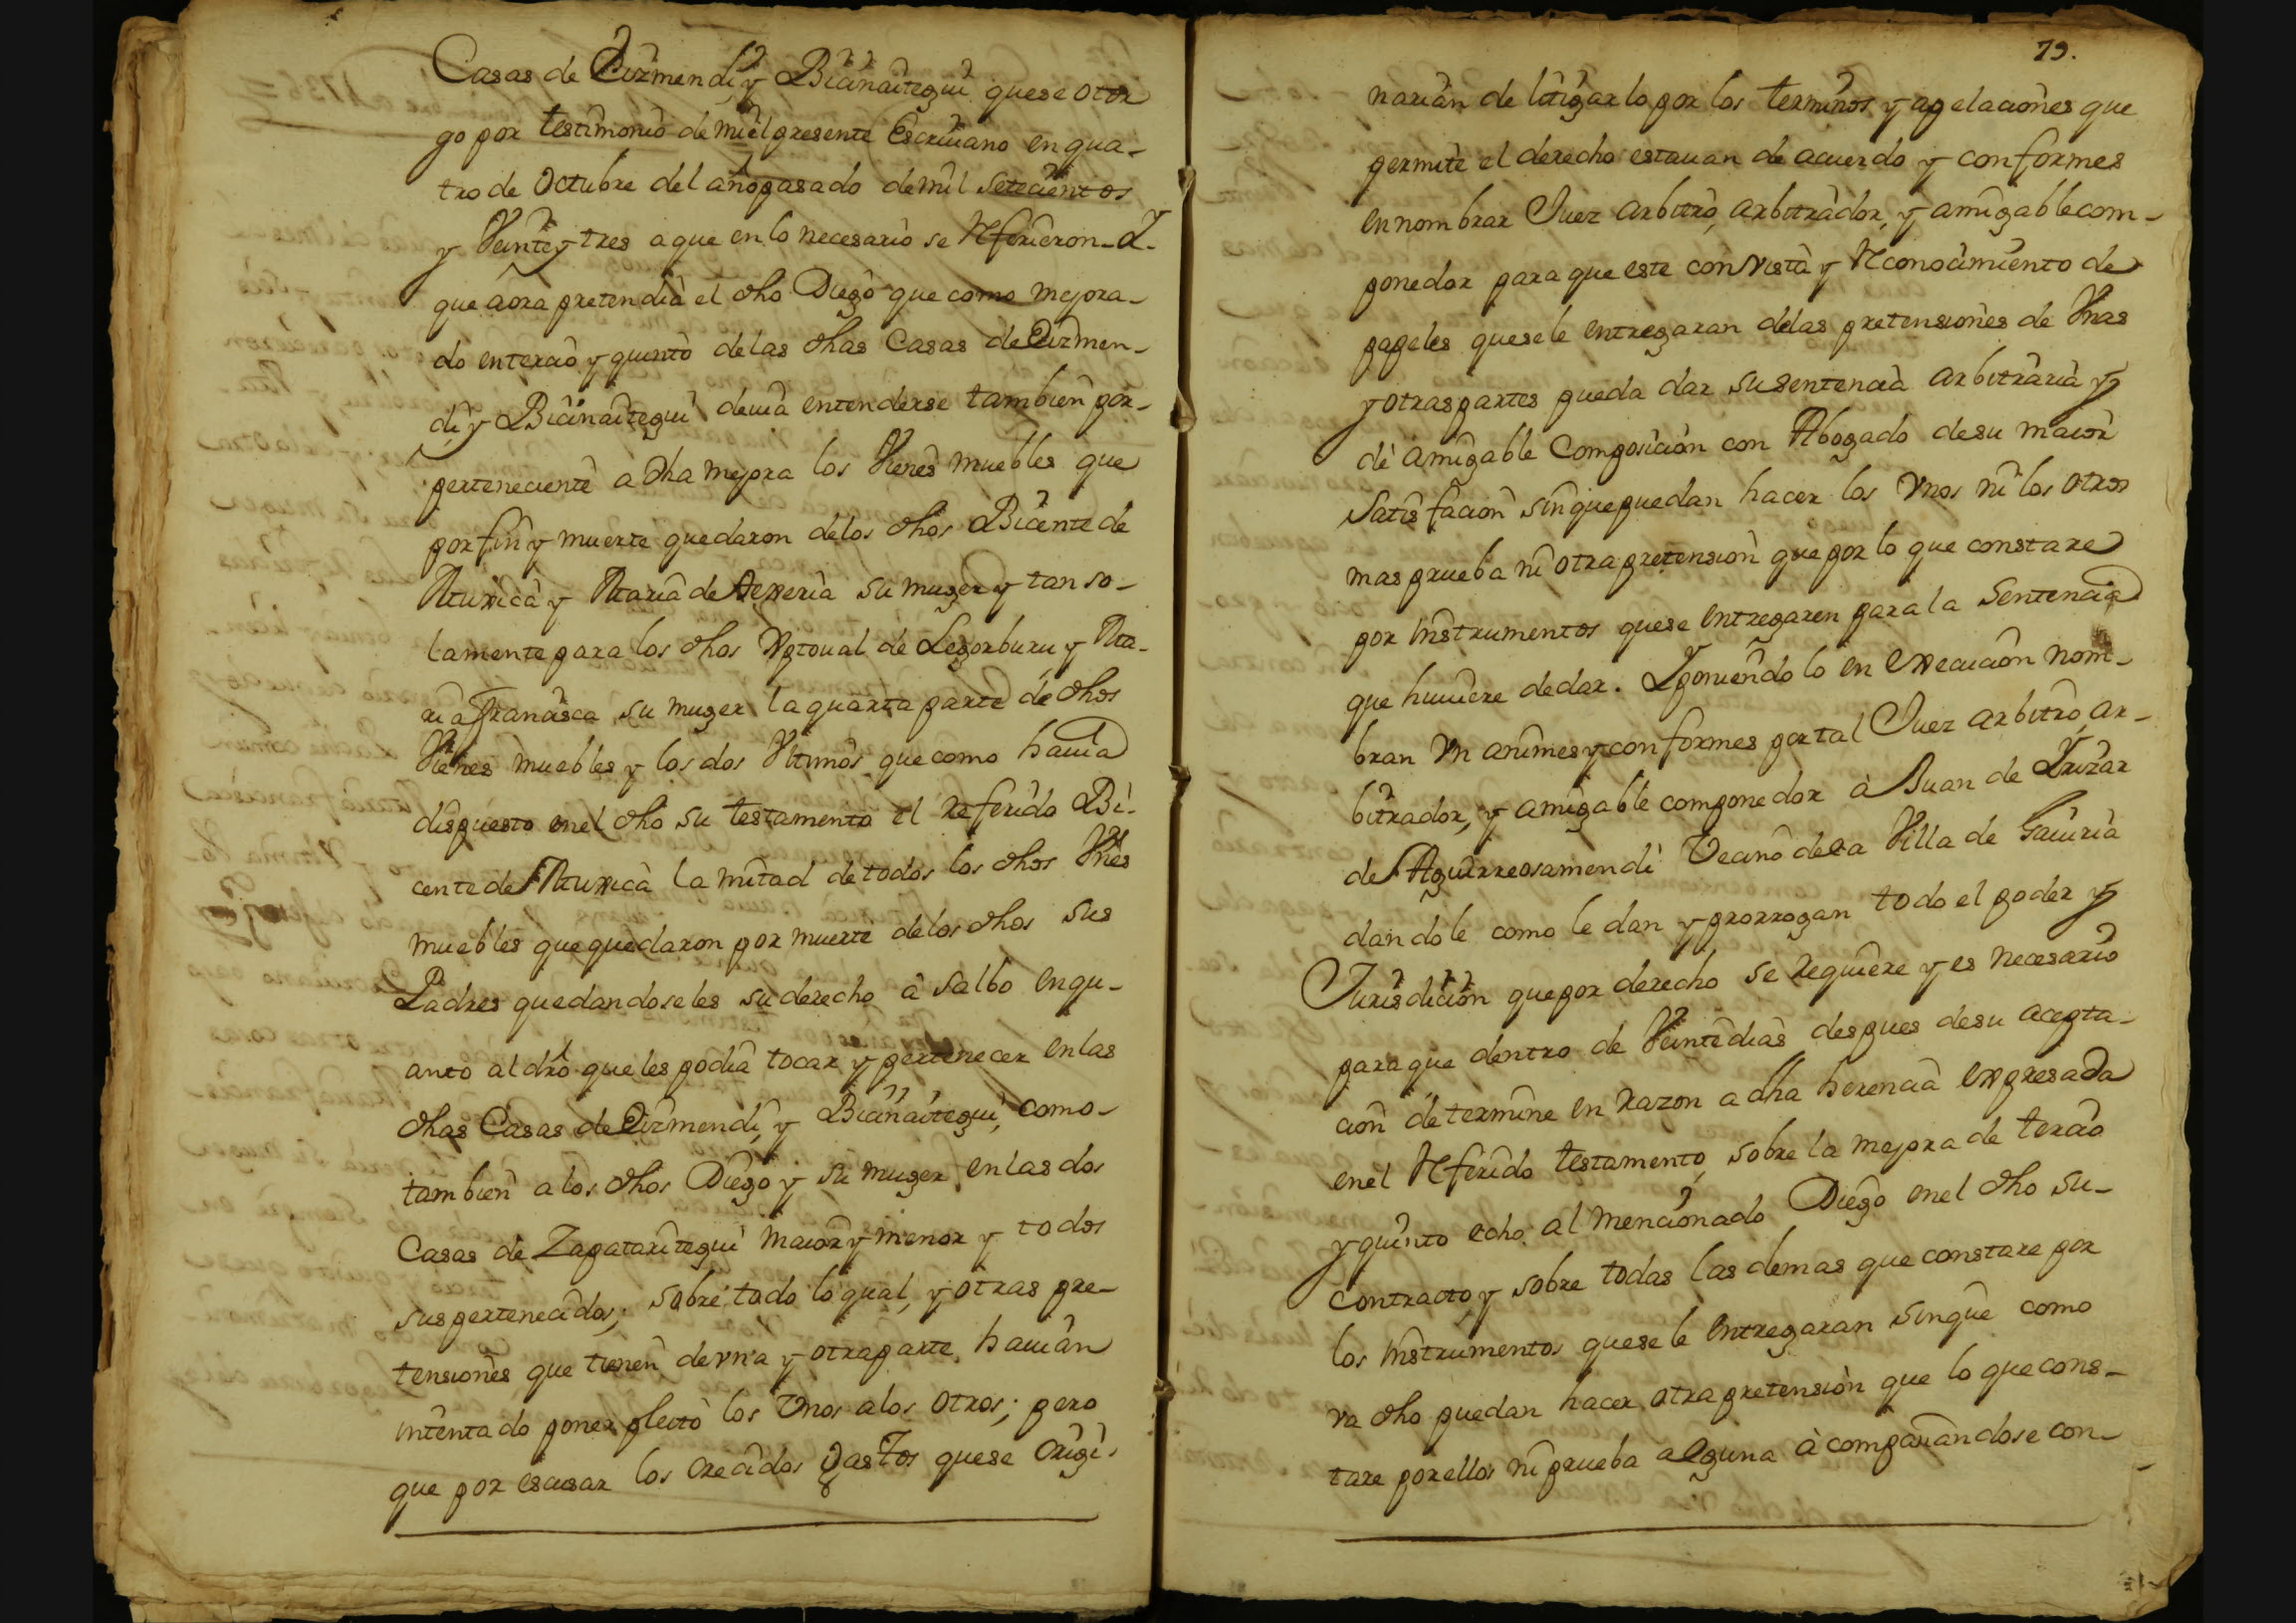 Casas de Eizmendi, y Bicinaitegui que se otor
go por testimonio de mi el presente Escriuano en qua-
tro de Octubre del año pasado de mil setecientos
y Veinte y tres a que en lo necesario se Refirieron. Y
que aora pretendia el dho Diego que como mejora-
do en tercio y quinto de las dhas Casas de Eizmen-
di, y Bicinaitegui deuia entenderse tambien por-
perteneciente à dha mejora los Vienes muebles que
por fin y muerte quedaron de los dhos Bicente de
Muxica y Maria de Atexeria su muger y tan so-
lamente para los dhos Xptoual de Legorburu y Ma-
ria Francisca su muger la quarta parte de dhos
Vienes muebles y los dos Vltimos que como hauia
dispuesto en el dho su testamento el referido Bi-
cente de Muxica la mitad de todos los dhos Vnes
muebles que quedaron por muerte de los dhos sus
Padres quedandoseles su derecho à salbo en qu-
anto al dro que les podia tocar y pertenecer en las
dhas Casas de Eizmendi, y Bicinaitegui, como-
tambien a los dhos Diego y su muger en las dos
Casas de Zapataritegui maior y menor y todos
sus pertenecidos; sobre todo lo qual, y otras pre-
tensiones que tienen de vna y otra parte hauian
intentado poner pleito los Vnos a los otros; pero
que por escusar los crecidos gastos que se origi-
79.
narian de litigar lo por los terminos y apelaciones que
permite el derecho estauan de acuerdo y conformes
en nombrar Juez arbitro, arbitrador, y amigable com-
ponedor para que este con vista y Reconocimiento de
papeles que se le entregaran de las pretensiones de Vnas
y otras partes pueda dar su sentencia arbitraria y
de amigable Composicion con Abogado de su maior
Satisfacion sin que puedan hacer los Vnos ni los otros
mas prueba ni otra pretension que por lo que constare
por instrumentos que se entregaren para la Sentencia
que huuiere de dar. Y poniendo lo en execucion nom-
bran Vn animes y conformes por tal Juez arbitro, ar-
bitrador, y amigable componedor à Juan de Yrizar
de Aguirreosamendi Vecino de la Villa de Gauiria
dandole como le dan y prorrogan todo el poder y
Jurisdicion que por derecho se requiere y es necesario
para que dentro de Veinte dias despues de su acepta-
cion determine en razon a dha herencia expresada
en el Referido testamento, sobre la mejora de tercio
y quinto echo al mencionado Diego en el dho su-
contracto, y sobre todas las demas que constare por
los instrumentos que se le entregaran sin que como
va dho puedan hacer otra pretension que lo que cons-
tare por ellos ni prueba alguna acompañandose con-